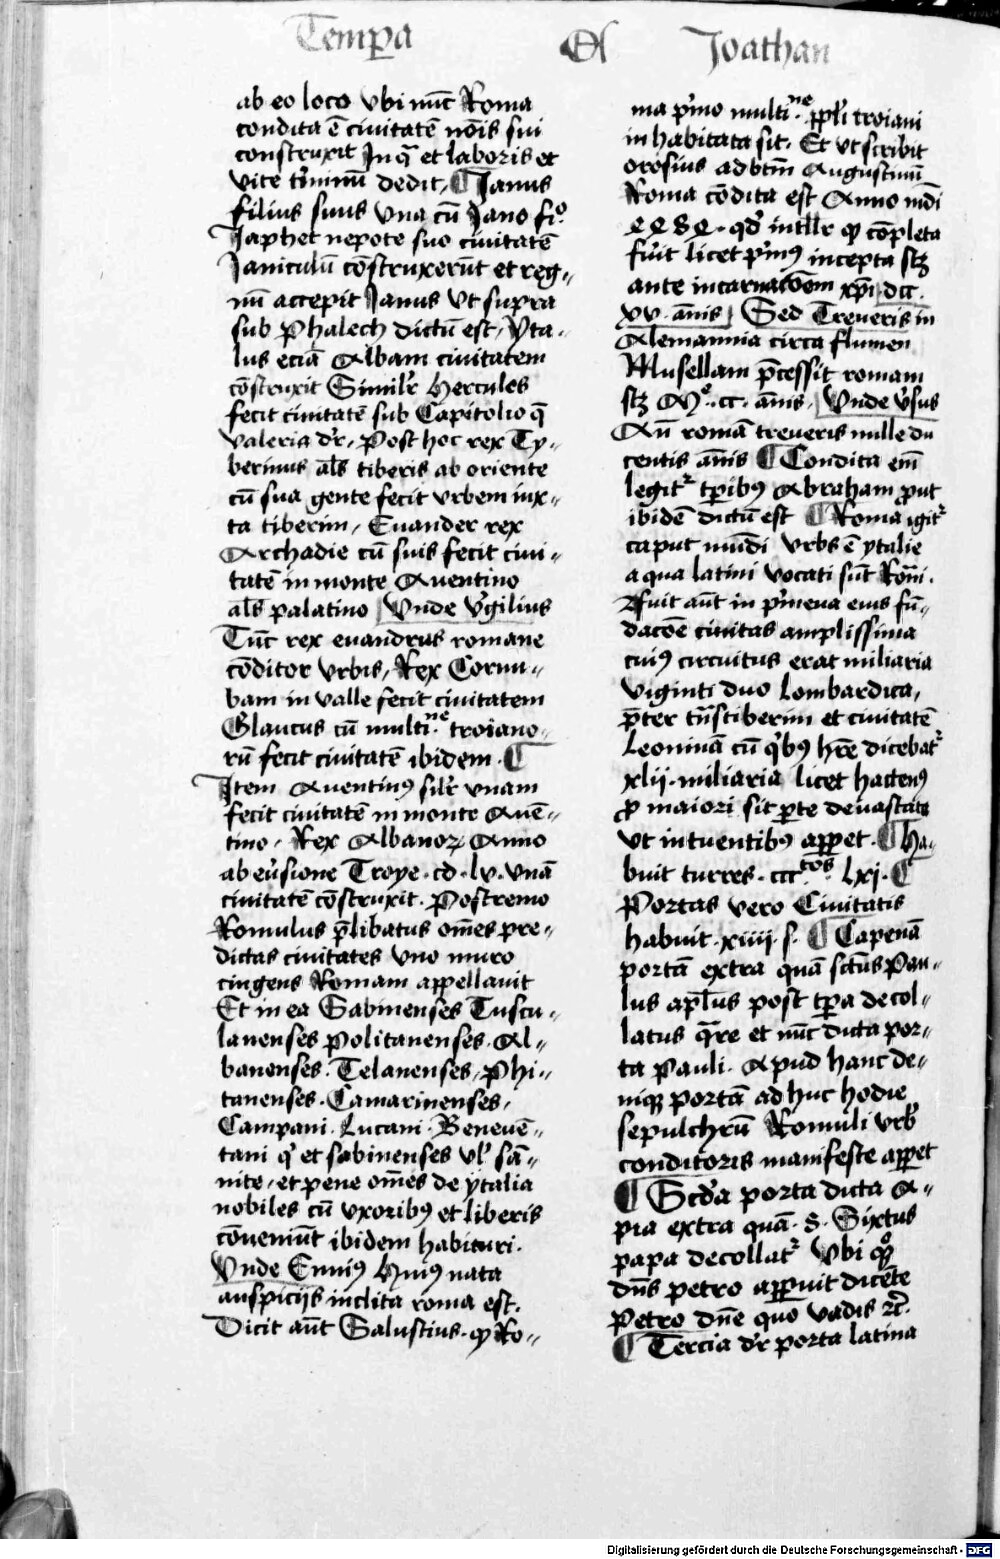 Tempa Ol Joathan
ab eo loco vbi nūc Roma
condita ē ciuitatē nōis sui
construxit In q̄ et laboris et
vite t'minū dedit, ¶ Janus
filius suus vna cū Jano fiº.
Japhet nepote suo ciuitatē
Janiculū cōstruxerūt et reg⸗
nū accepit Janus vt supra
sub Phalech dictū est, yta⸗
lus eciā Albam ciuitatem
cōstruxit Simil'r hercules
fecit ciuitatē sub Capitolio q̄
valeria dr̄, Post hoc rex Ty⸗
berinus al̄s tiberis ab oriente
cū sua gente fecit vrbem iux⸗
ta tiberim, Euander rex
Archadie cū suis fecit ciui⸗
tatē in monte Auentino
al̄s palatino Vnde v'gilius
Tūc rex euandrus romane
cōditor vrbis, Rex Coruu⸗
bam in valle fecit ciuitatem
Glaucus cū multiⁿᵉ troiano⸗
rū fecit ciuitatē ibidem. ¶
Item Auentinꝰ sil'r vnam
fecit ciuitatē in monte Auē⸗
tino, Rex Albanoꝝ Anno
ab eu'sione Troye. cd. lv. vnā
ciuitatē cōstruxit. Postremo
Romulus p̄libatus om̄es pre⸗
dictas ciuitates vno muro
cingens Romam appellauit
Et in ea Sabinenses Tuscu⸗
lanenses Politanenses. Al⸗
banenses. Telanenses, Phi⸗
tanenses. Camarinenses,
Campani. Lucani. Beneuē⸗
tani q' et sabinenses vl' sā⸗
nite, et pene om̄es de ytalia
nobiles cū vxoribꝰ et liberis
cōueniūt ibidem habituri.
Vnde Enniꝰ huiꝰ nata
auspicijs inclita roma est.
Dicit aūt Salustius. ꝙ Ro⸗
ma p'mo multiⁿᵉ. ppl'i troiani
inhabitata sit. Et vt scribit
orosius ad btm̄ Augustinū
Roma cōdita est Anno mōi
qd' intllr ꝙ cōpleta
fu'it licet p'mꝰ incepta sꝫ
ante incarnatōem xp̄i. dcc.
xv. annis, Sed Treueris in
Alemannia circa flumen
Musellam p̄cessit romam
sꝫ Mº. cc. annis, Vnde v'sus
An̄ romā treueris mille du
centis annis ¶ Condita em̄
legit' tp̄ibꝰ Abraham put
ibidē dictū est ¶ Roma igit'
caput mūdi vrbs ē ytalie
a qua latini vocati sūt Rōni.
Fuit aūt in p'meua eius fū⸗
dacōe ciuitas amplissima
cuiꝰ circuitus erat miliaria
viginti duo lombardica,
p̄ter tn̄stiberim et ciuitatē
Leoninā cū q'bꝰ hr̄e dicebat'
xlii. miliaria licet hactenꝰ
ꝓ maiori sit ꝑte deuastata
vt intuentibꝰ appet. ¶ ha⸗
buit turres. cccᵗᵒˢ. lxj. ¶
Portas vero Ciuitatis
habuit. xiiii. s. ¶ Capenā
portā extra quā sctūs Pau⸗
lus apl̄us post tp̄a decol⸗
latus q̄re et nūc dicta por⸗
ta Pauli. Apud hanc de⸗
niqꝫ portā adhuc hodie
sepulchrū Romuli vrb'
conditoris manifeste appet
¶ Scd'a porta dicta A⸗
pia extra quā. S. Sixtus
papa decollat' Vbi qºqꝫ
dn̄s petro apparuit dicēte
Petro dn̄e quo vadis ⁊c̄.
¶ Tercia dr̄ porta latina
Digitalisierung gefördert durch die Deutsche Forschungsgemeinschaft - DFG